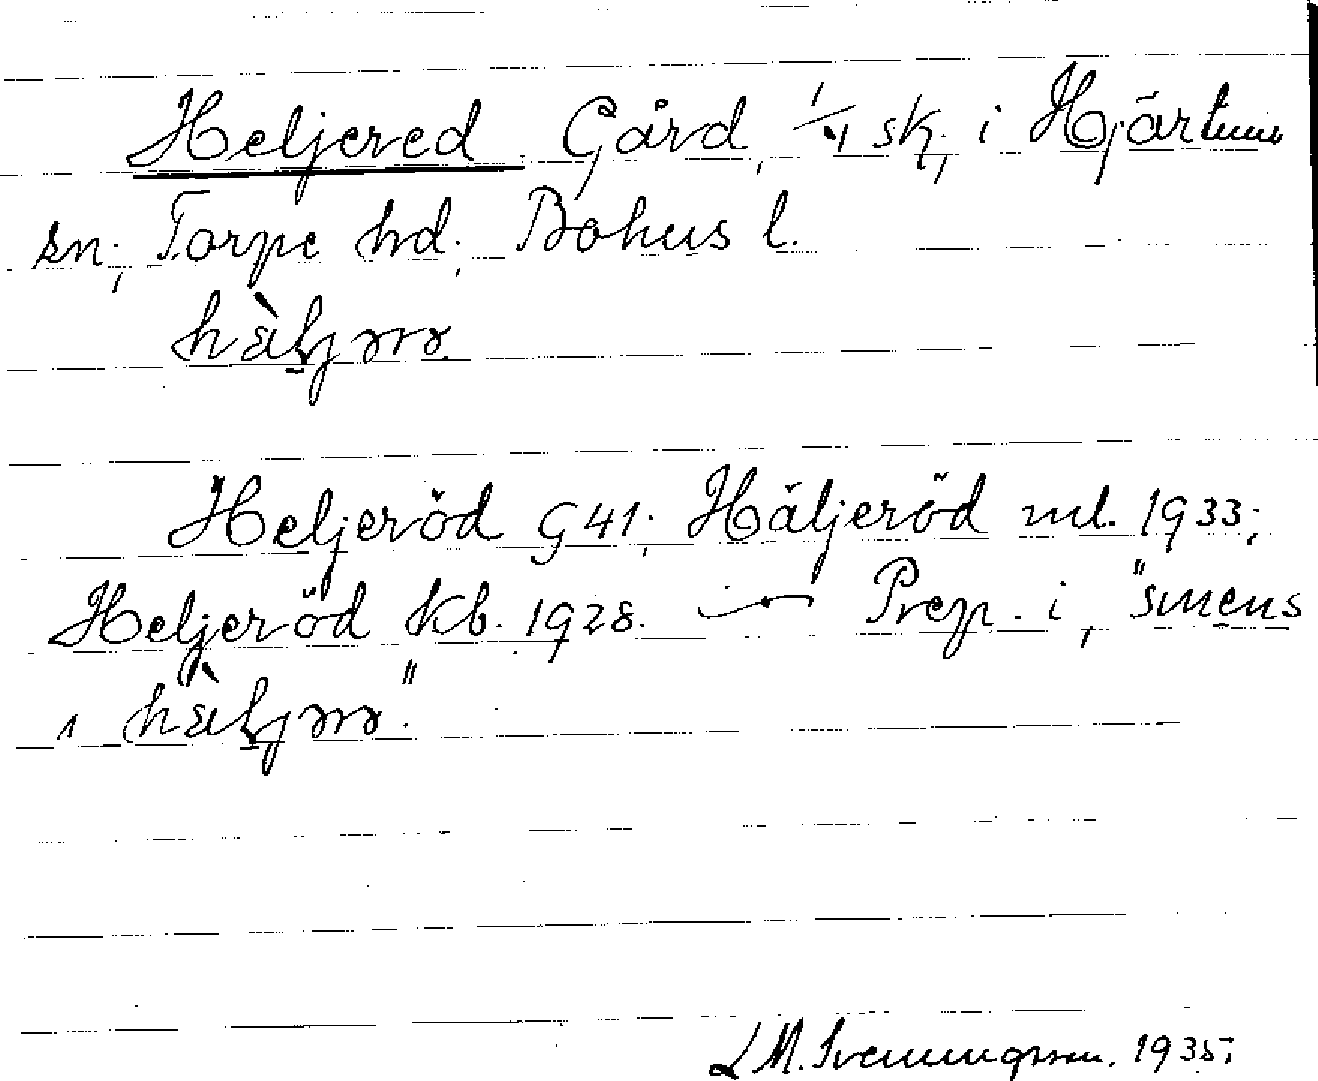 Heljered Gård, 1/4 sk, i Hjärtums
sn; Torpe hd; Bohus l.
Heljeröd G41; Häljeröd ml. 1933;
Heljeröd Kb. 1928. — Prep. i, "smens
L M. Svenungsson. 1935;